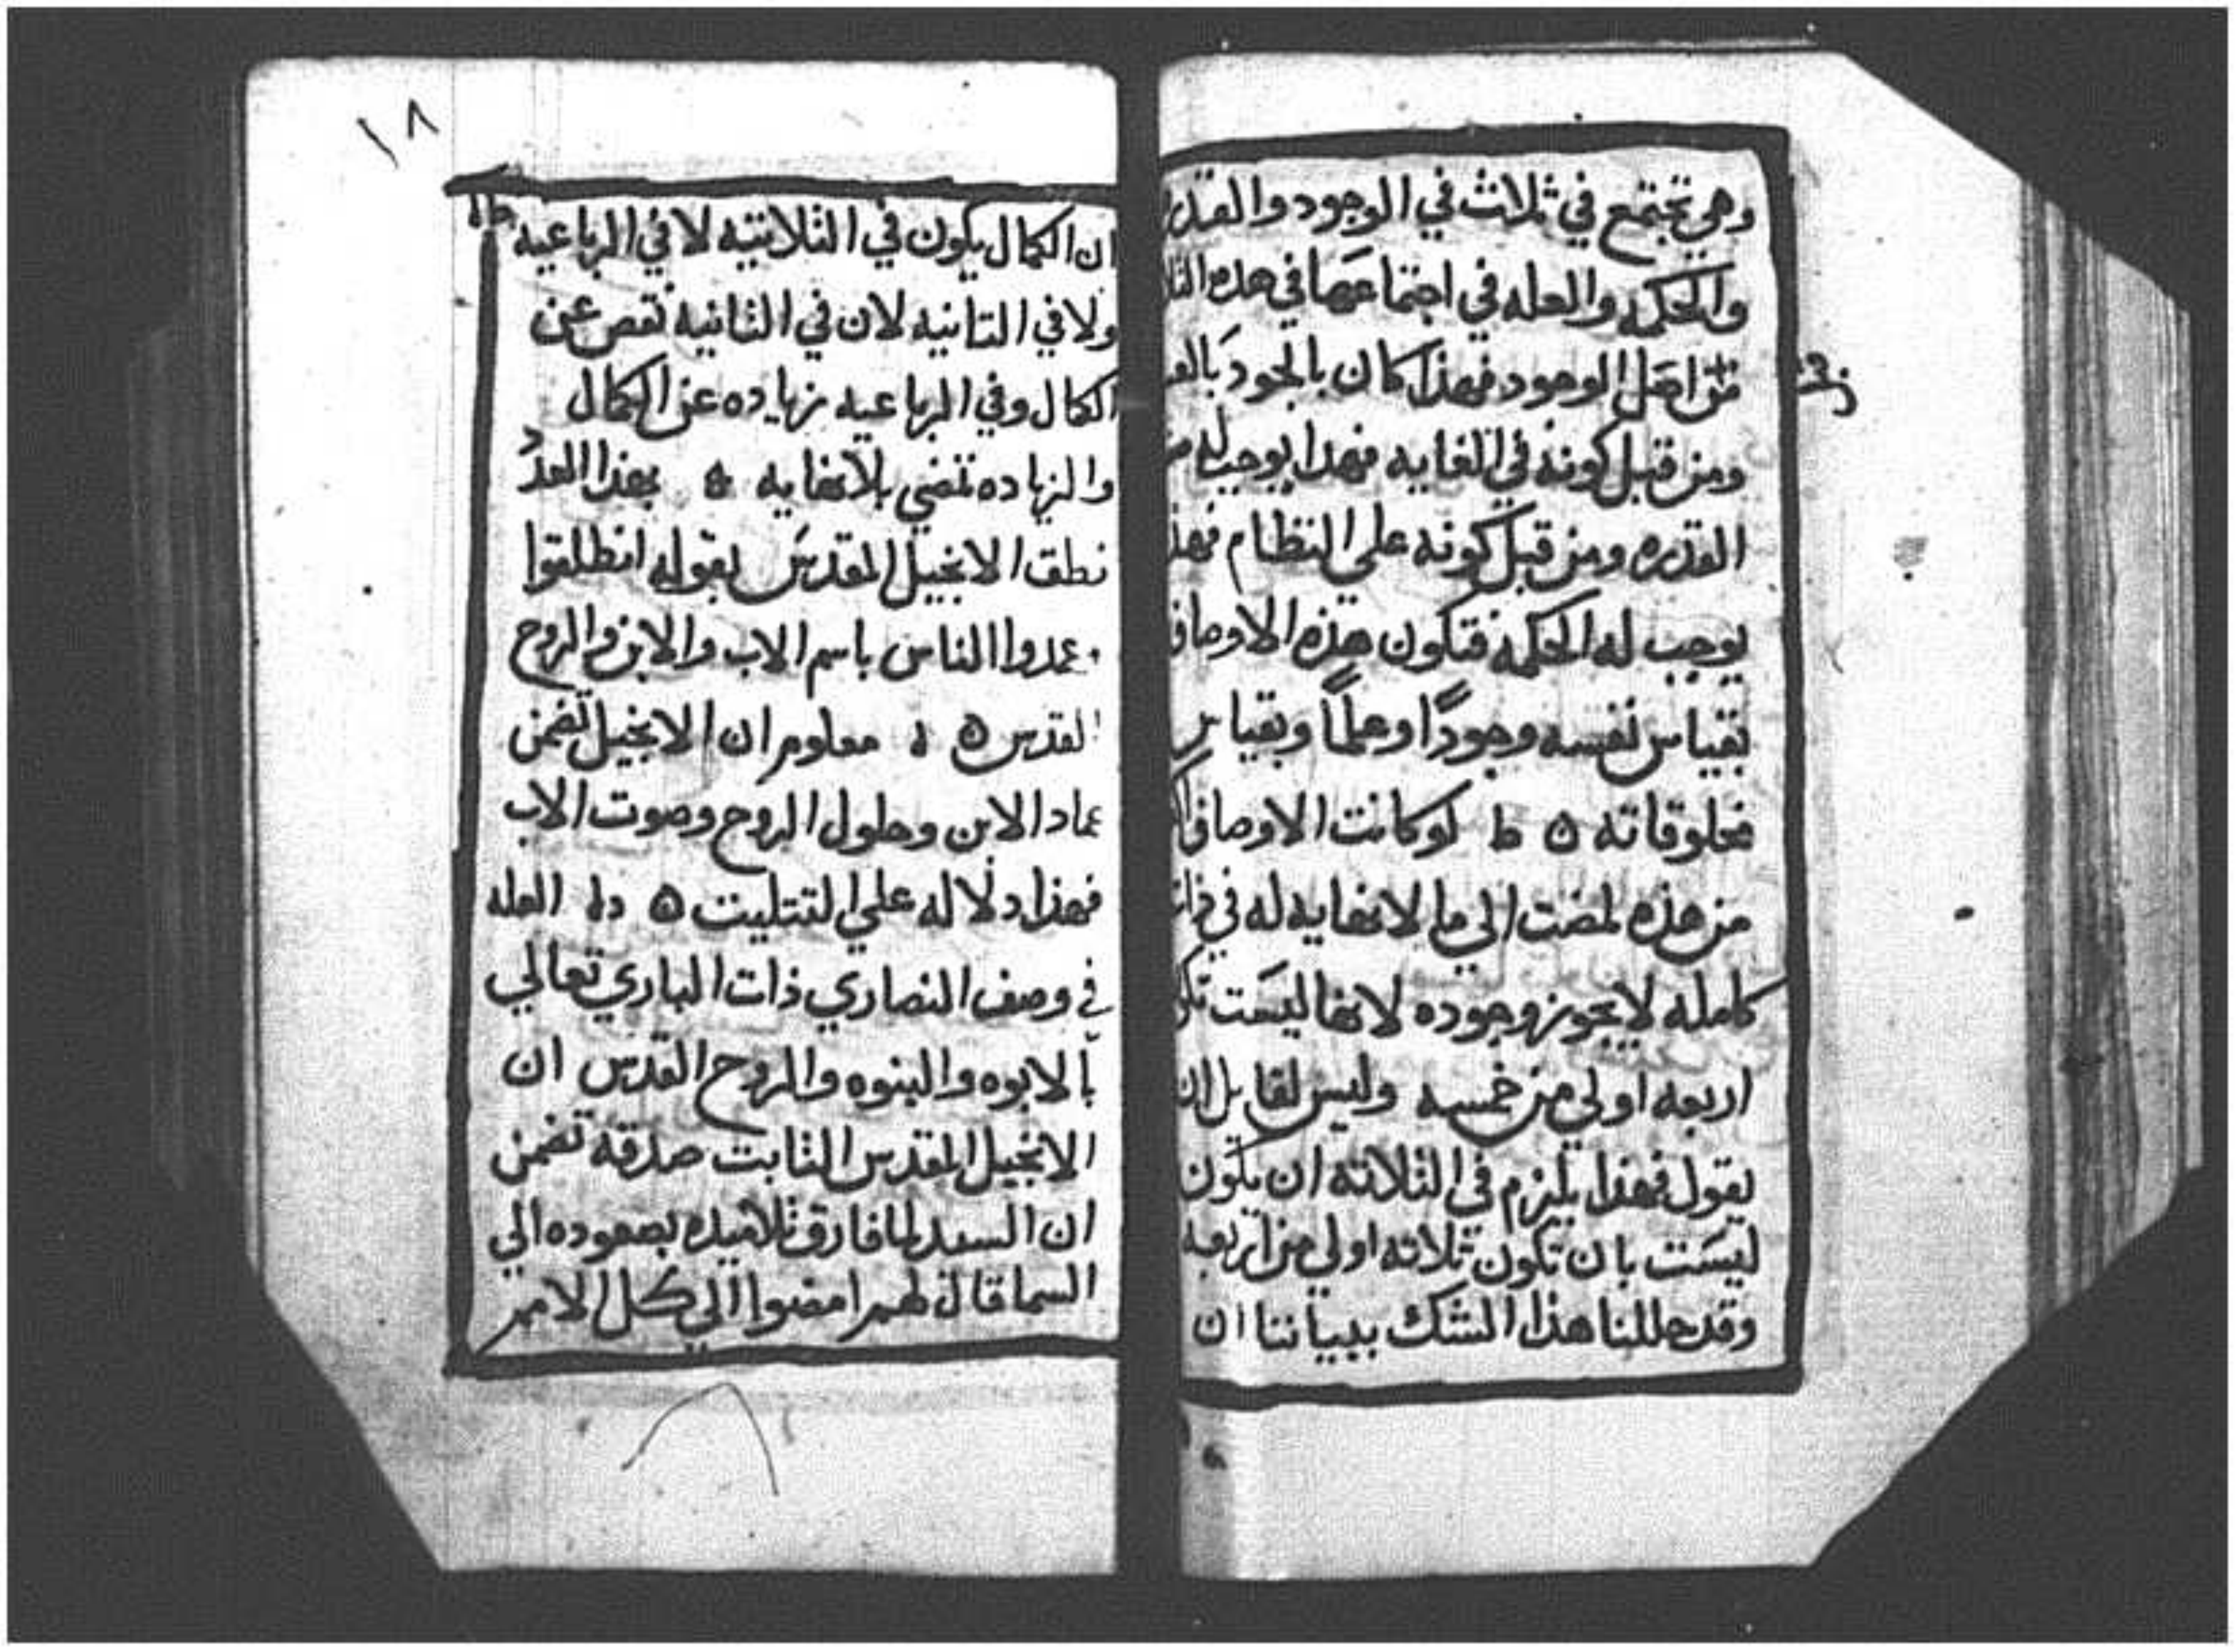 وهي تجتمع في ثلاث في الوجود والقدره
والحكمه والعله في اجتماعها في هذه
من اجل الوجود فهذا كان بالجود
ومن قبل كونه في الغايه فهدا يوجب له
القدره ومن قبل كونه علي النظام
يوجب له الحكمه فتكون هذه الاوصاف
بقياس نفسه وجودًا وعلمًا وبقياس
مخلوقاته ٥ ط لو كانت الاوصاف
من هذه لمضت الي ما لا نهايه له في
كامله لا يجوز وجوده لانها ليست
اربعه اولي من خمسه وليس لقايل ان
يقول فهذا يلزم في الثلاثه ان يكون
ليست بان تكون تلاته اولي من اربعه
وقد حللنا هذا الشك ببياننا ان
١٨
ان الكمال يكون في الثلاثيه لا في الرباعيه
ولا في التانيه لان في الثانيه نقص عن
الكمال وفي الرباعيه زياده عن الكمال
والزياده تمضي بلا نهايه ٥ بهذا العدد
نطق الانجيل المقدس بقوله انطلقوا
عمدوا الناس باسم الاب والابن والروح
القدس ٥ معلوم ان الانجيل تضمن
عماد الابن وحلول الروح وصوت الاب
فهذا دلاله علي التتليت ٥ العله
في وصف النصاري ذات الباري تعالي
بالابوه والبنوه والروح القدس ان
الانجيل المقدس الثابت صدقه تضمن
ان السيد لما فارق تلاميده بصعوده الي
السما قال لهم امضوا الي كل الامم